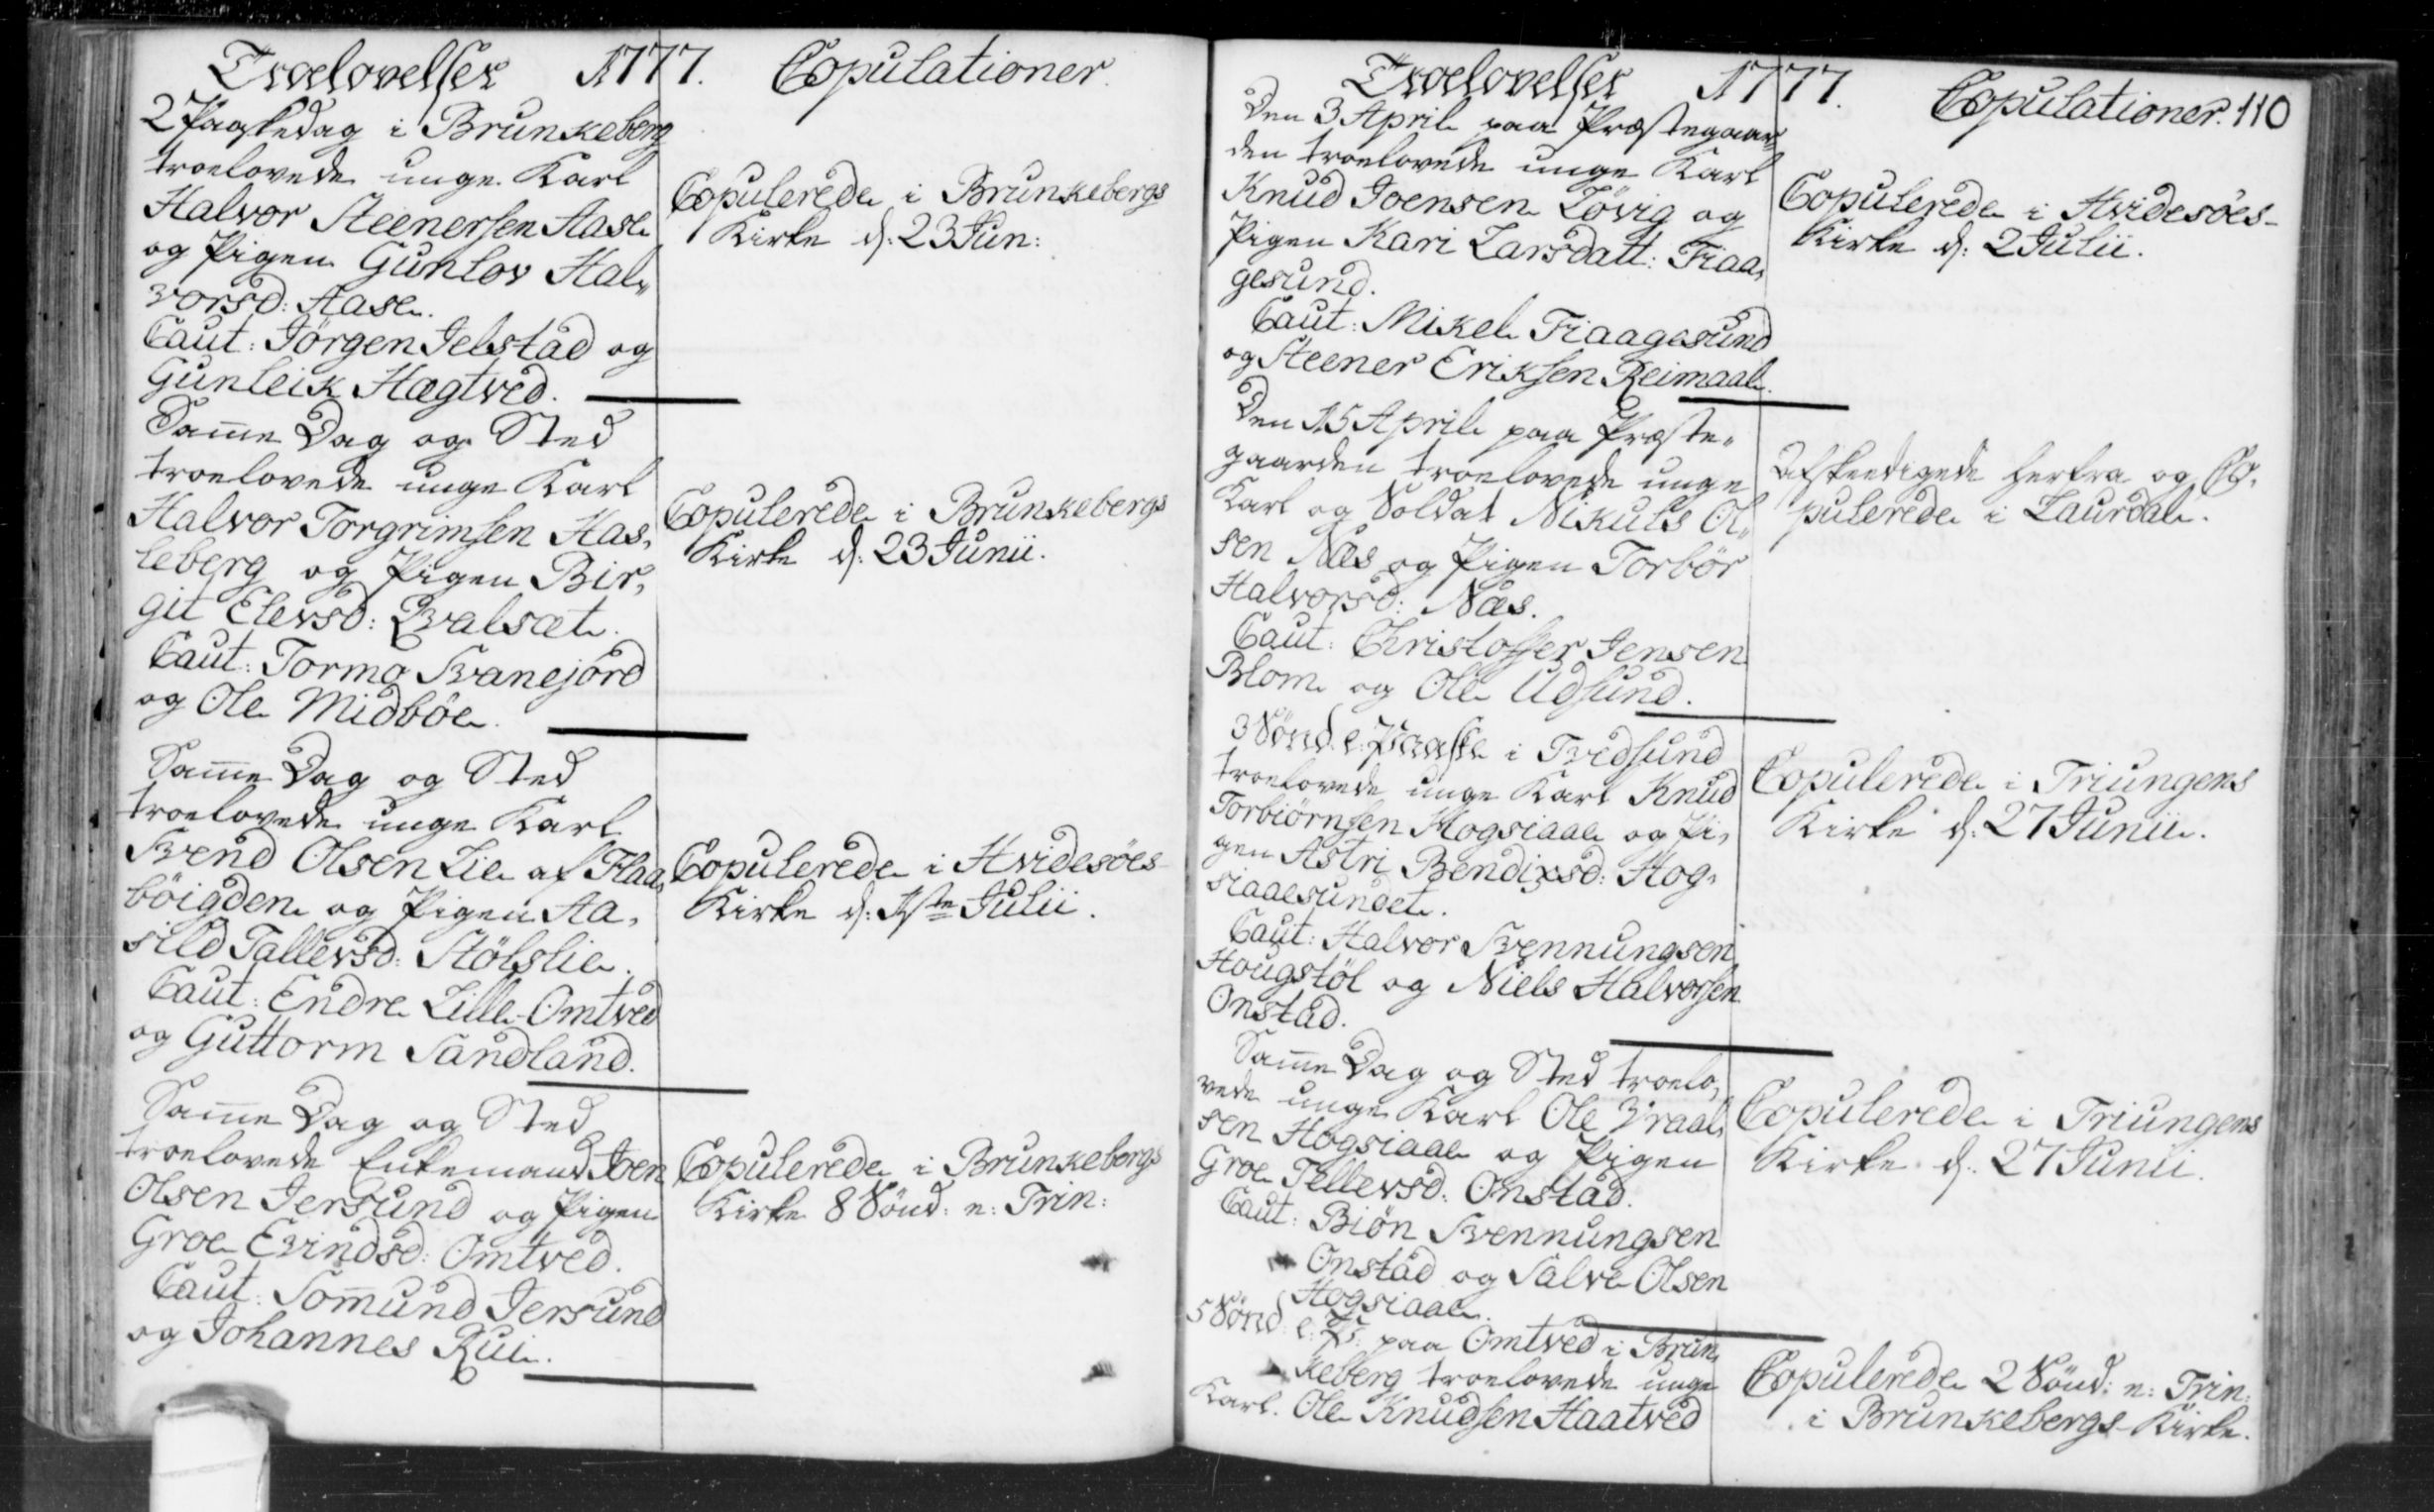 Troelovelser 1777. Copulationer.
2 Paaskedag i Brunkeberg
troelovede unge Karl
Halvor Steenersen Aase
og Pigen Gunlov Hal,,
vorsd: Aase.
Caut: Jörgen Jelstad og
Gunleik Hægtved.
Copulerede i Brunkebergs
Kirke d: 23 Jun:
Sam̄e Dag og Sted
troelovede unge Karl
Halvor Torgrimsen Has,
leberg og Pigen Bir,
git Elevsd: Qvalsæt.
Caut: Tormo Svanejord
og Ole Midböe.
Copulerede i Brunkebergs
Kirke d: 23 Junii.
Sam̄e Dag og Sted
troelovede unge Karl
Svend Olsen Lie af Flaa,
böigden og Pigen Aa,
sild Tallevsd: Stölslie.
Caut: Endre Lille-Omtved
og Guttorm Sandland.
Copulerede i Hvidesöes-
Kirke d: 1ste Julii.
Sam̄e Dag og Sted
troelovede Enkemand Joen
Olsen Jersund og Pigen
Groe Evindsd: Omtved.
Caut: Som̄und Jersund
og Johannes Rui.
Copulerede i Brunkebergs
Kirke 8 Sönd: n: Trin:
Troelovelser 1777. Copulationer. 110
Den 3 April paa Præstegaar,
den troelovede unge Karl
Knud Joensen Lövig og
Pigen Kari Larsdatt: Fiaa,
gesund.
Caut: Mikel Fiaagesund
og Steener Eriksen Reimaal.
Copulerede i Hvidesöes-
Kirke d: 2 Julii.
Den 15 April paa Præste,,
gaarden troelovede unge
Karl og Soldat Nikuls Ol,,
sen Næs og Pigen Torbör
Halvorsd: Næs.
Caut: Christoffer Jensen
Blom og Ole Udsund.
Afskeedigede herfra og Co,
pulerede i Laurdal.
3 Sönd. e: Paaske i Tvedsund
troelovede unge Karl Knud
Torbiörnsen Hogsiaae og Pi,
gen Astri Bendixsd: Hog,
siaaesundet.
Caut: Halvor Svennungsen
Hougstöl og Niels Halvorsen
Onstad.
Copulerede i Triungens
Kirke d: 27 Junii.
Sam̄e Dag og Sted troelo,
vede unge Karl Ole Vraal,
sen Hogsiaae og Pigen
Groe Tellevsd: Onstad.
Caut: Biön Svennungsen
Onstad og Salve Olsen
Hogsiaae.
Copulerede i Triungens
Kirke d: 27 Junii.
5 Sönd. e: P: paa Omtved i Brun,
keberg troelovede unge
Karl Ole Knudsen Haatved
Copulerede 2 Sönd: n: Trin:
i Brunkebergs-Kirke.